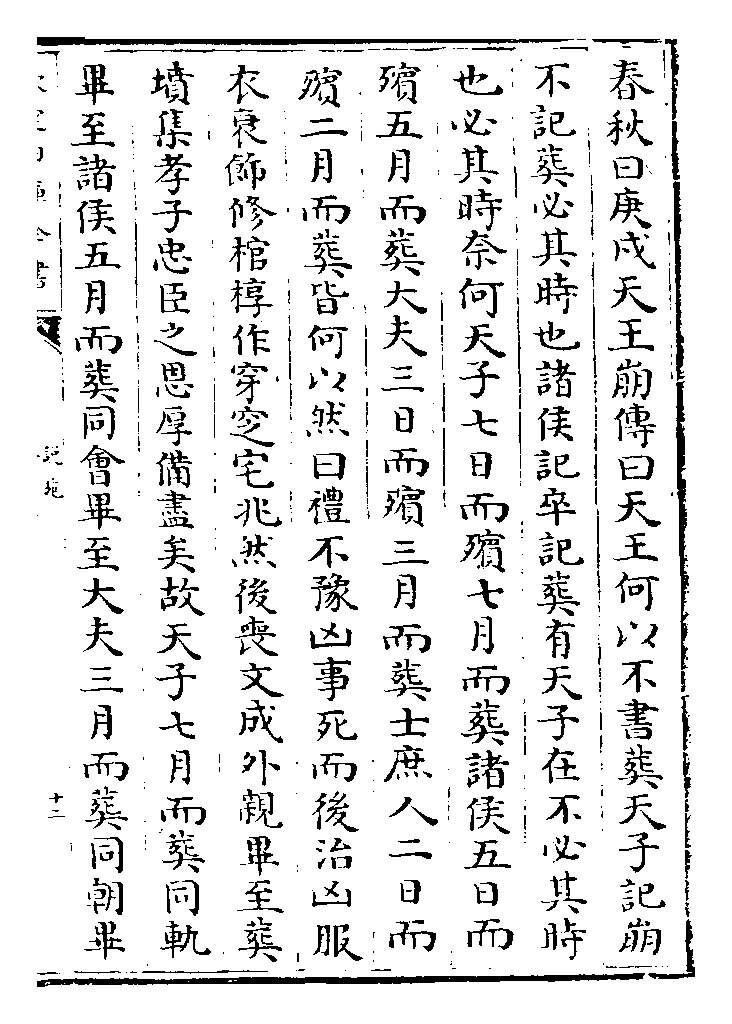 春秋曰庚戌天王崩傳曰天王何以不書葬天子記崩
不記葬必其時也諸侯記卒記葬有天子在不必其時
也必其時奈何天子七日而殯七月而葬諸侯五日而
殯五月而葬大夫三日而殯三月而葬士庶人二日而
殯二月而葬皆何以然曰禮不豫凶事死而後治凶服
衣衰飾修棺椁作穿窆宅兆然後喪文成外親畢至葬
墳集孝子忠臣之恩厚備盡矣故天子七月而葬同軌
畢至諸侯五月而葬同會畢至大夫三月而葬同朝畢
說苑
十二